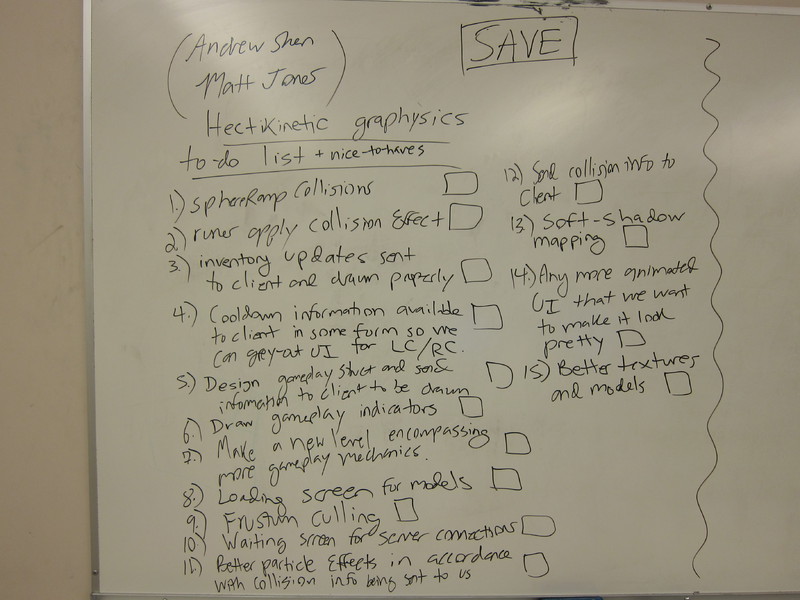 (Andrew Shen
Matt Jones)
SAVE
Hectikinetic graphysics
to-do list + nice-to-haves
1.) sphereRamp Collisions
2.) runer apply collision Effect
3.) inventory updates sent
to client and drawn properly
4.) Cooldown information available
to client in some form so we
can grey-out UI for LC/RC.
5.) Design gameplay struct and send
information to client to be drawn
6.) Draw gameplay indicators
7.) Make a new level encompassing
more gameplay mechanics.
8.) Loading screen for models
9.) Frustum culling
10.) Waiting screen for server connections
11.) Better particle Effects in accordance
with collision info being sent to us
12.) Send collision info to
Client
13.) Soft-shadow
mapping
14.) Any more animated
UI that we want
to make it look
pretty
15.) Better textures
and models